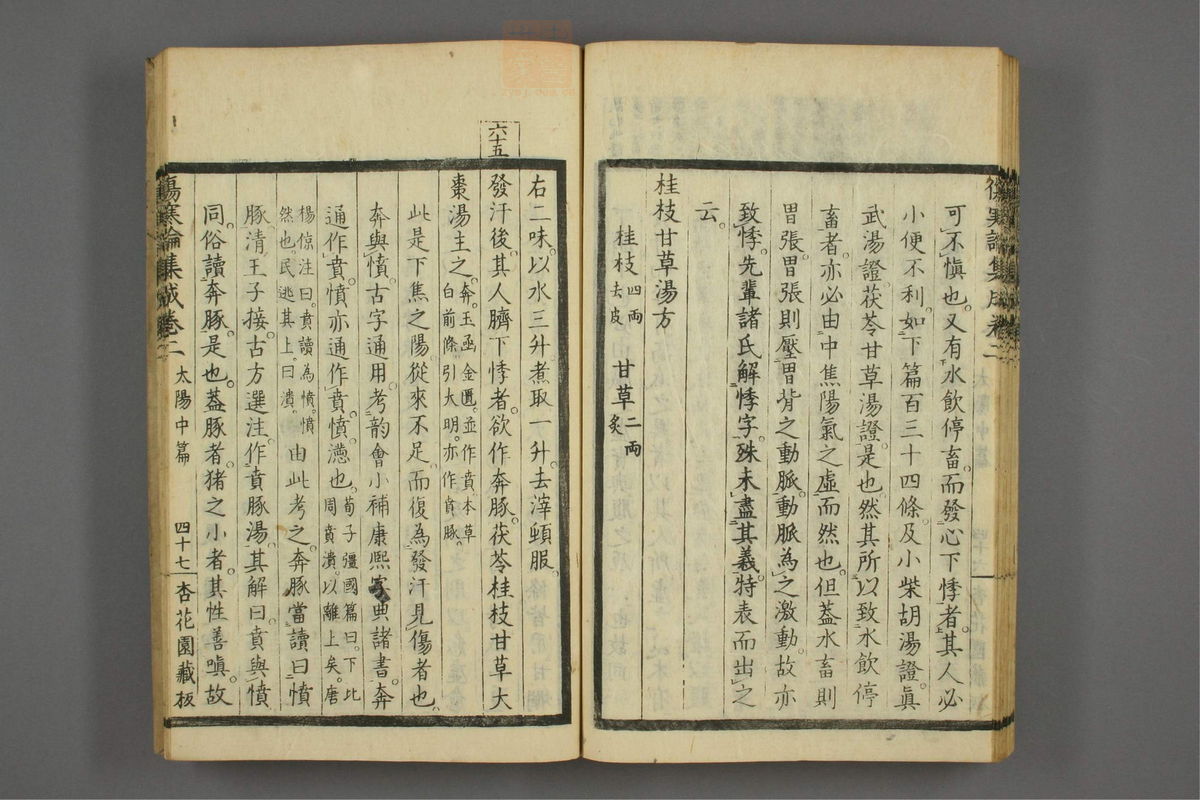 可不愼也。又有水飲停畜。而發心下悸者。其人必
小便不利。如下篇百三十四條。及小柴胡湯證。眞
武湯證。茯苓甘草湯證。是也。然其所以致水飲停
畜者。亦必由中焦陽氣之虛而然也。但蓋水畜則
胃張。胃張則壓胃背之動脈。動脈為之激動。故亦
致悸。先輩諸氏解悸字。殊未盡其義。特表而出之
云。
桂枝甘草湯方
桂枝四兩去皮 甘草二兩炙
右二味。以水三升煮取一升。去滓頓服。
六十五
發汗後。其人臍下悸者。欲作奔豚。茯苓桂枝甘草大
棗湯主之。奔。玉函金匱。並作賁。本草白前條。引大明。亦作賁豚。
此是下焦之陽從來不足。而復為發汗見傷者也。
奔與憤。古字通用。考韵會小補康熙字典諸書。奔
通作賁。憤亦通作賁。憤。懣也。荀子彊國篇曰。下比周賁潰。以離上矣。唐
楊倞注曰。賁讀為憤。憤然也。民逃其上。曰潰。由此考之。奔豚當讀曰憤
豚。清王子接。古方選注。作賁豚湯。其解曰。賁與憤
同。俗讀奔豚。是也。蓋豚者。猪之小者。其性善嗔。故
傷寒論集成卷二 太陽中篇 四十七 杏花園藏板